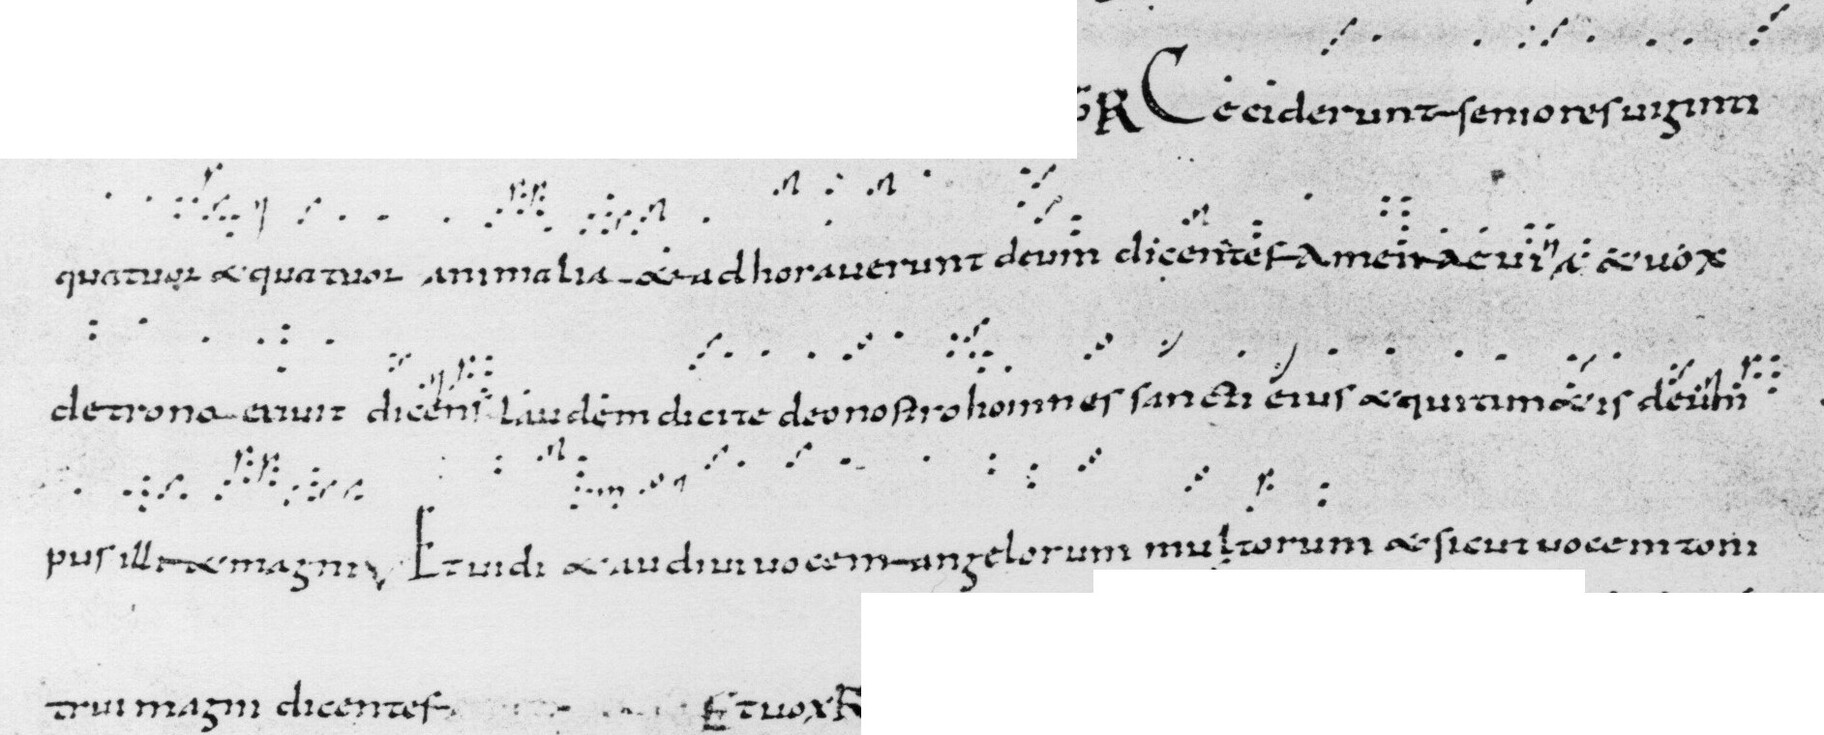 R Ceciderunt seniores uiginti
quatuor & quatuor animalia & adhorauerunt deum dicentes Amen & uox
detrono exiuit dicens laudem dicite deo nostro homnes sancti eius & quitim&is deum
pusilli & magni V Et uidi & audiui uocem angelorum multorum & sicut uocem toni
trui magni dicentes Et uox R